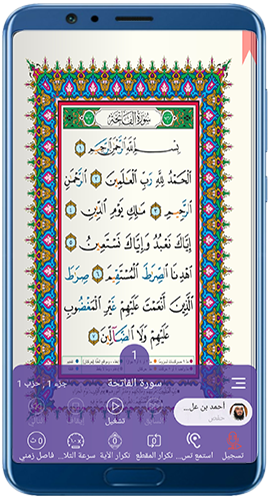 سورة الفاتحة
بِسْمِ اللَّهِ الرَّحْمَٰنِ الرَّحِيمِ ١
الْحَمْدُ لِلَّهِ رَبِّ الْعَالَمِينَ ٢ الرَّحْمَٰنِ
الرَّحِيمِ ٣ مَالِكِ يَوْمِ الدِّينِ ٤
إِيَّاكَ نَعْبُدُ وَإِيَّاكَ نَسْتَعِينُ ٥
اهْدِنَا الصِّرَاطَ الْمُسْتَقِيمَ ٦ صِرَاطَ
الَّذِينَ أَنْعَمْتَ عَلَيْهِمْ غَيْرِ الْمَغْضُوبِ
عَلَيْهِمْ وَلَا الضَّالِّينَ ٧
1
سورة الفاتحة
جزء 1 , حزب 1
أحمد بن عل...
حفص
تشغيل
تسجيل
استمع تس...
تكرار المقطع
تكرار الآية
سرعة التلا...
فاصل زمني